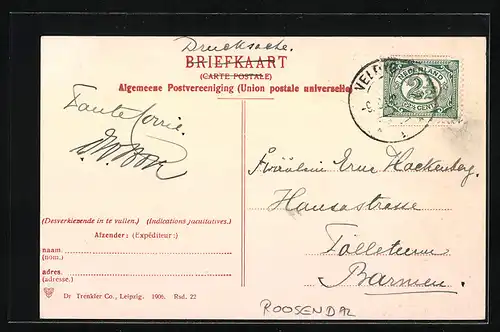 Drucksache.
BRIEFKAART
(CARTE POSTALE)
Algemeene Postvereeniging (Union postale universelle)
NEDERLAND
2½
CENT
Tante Corrie.
Fräulein Erne Hackenberg.
Hansastrasse
Barmen.
(Desverkiezende in te vullen.) (Indications facultatives.)
Afzender: (Expéditeur:)
naam.
(nom.)
adres.
(adresse.)
Dr Trenkler Co., Leipzig. 1906. Rsd. 22
ROOSENDAL